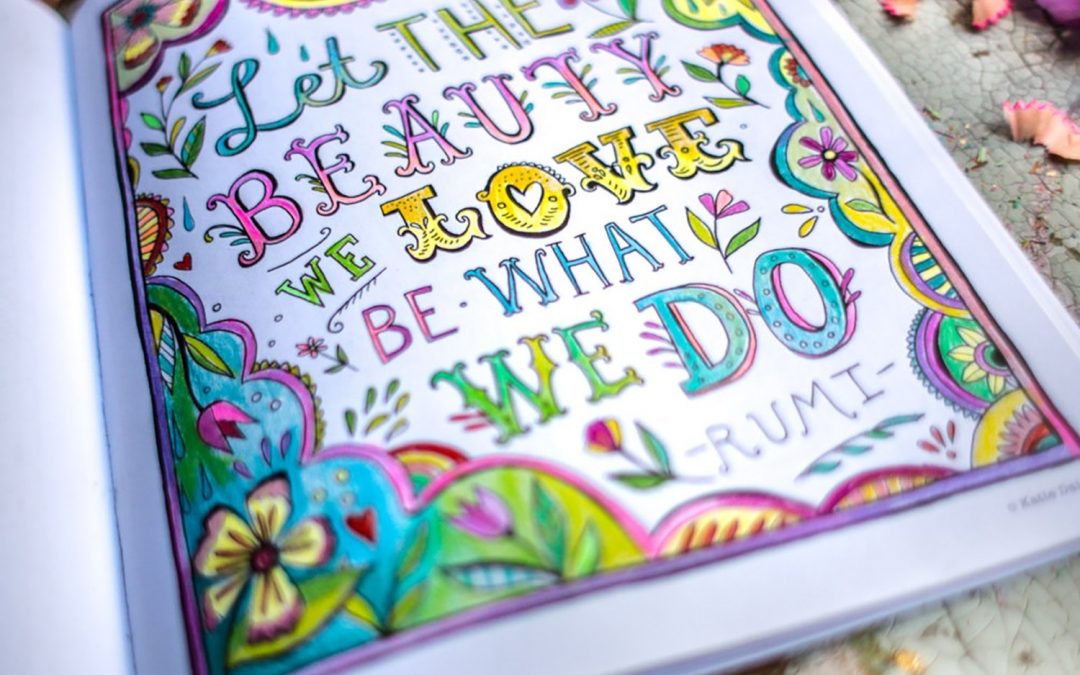 Let THE
BEAUTY
WE LOVE
BE·WHAT
WE DO
-RUMI-
© Katie